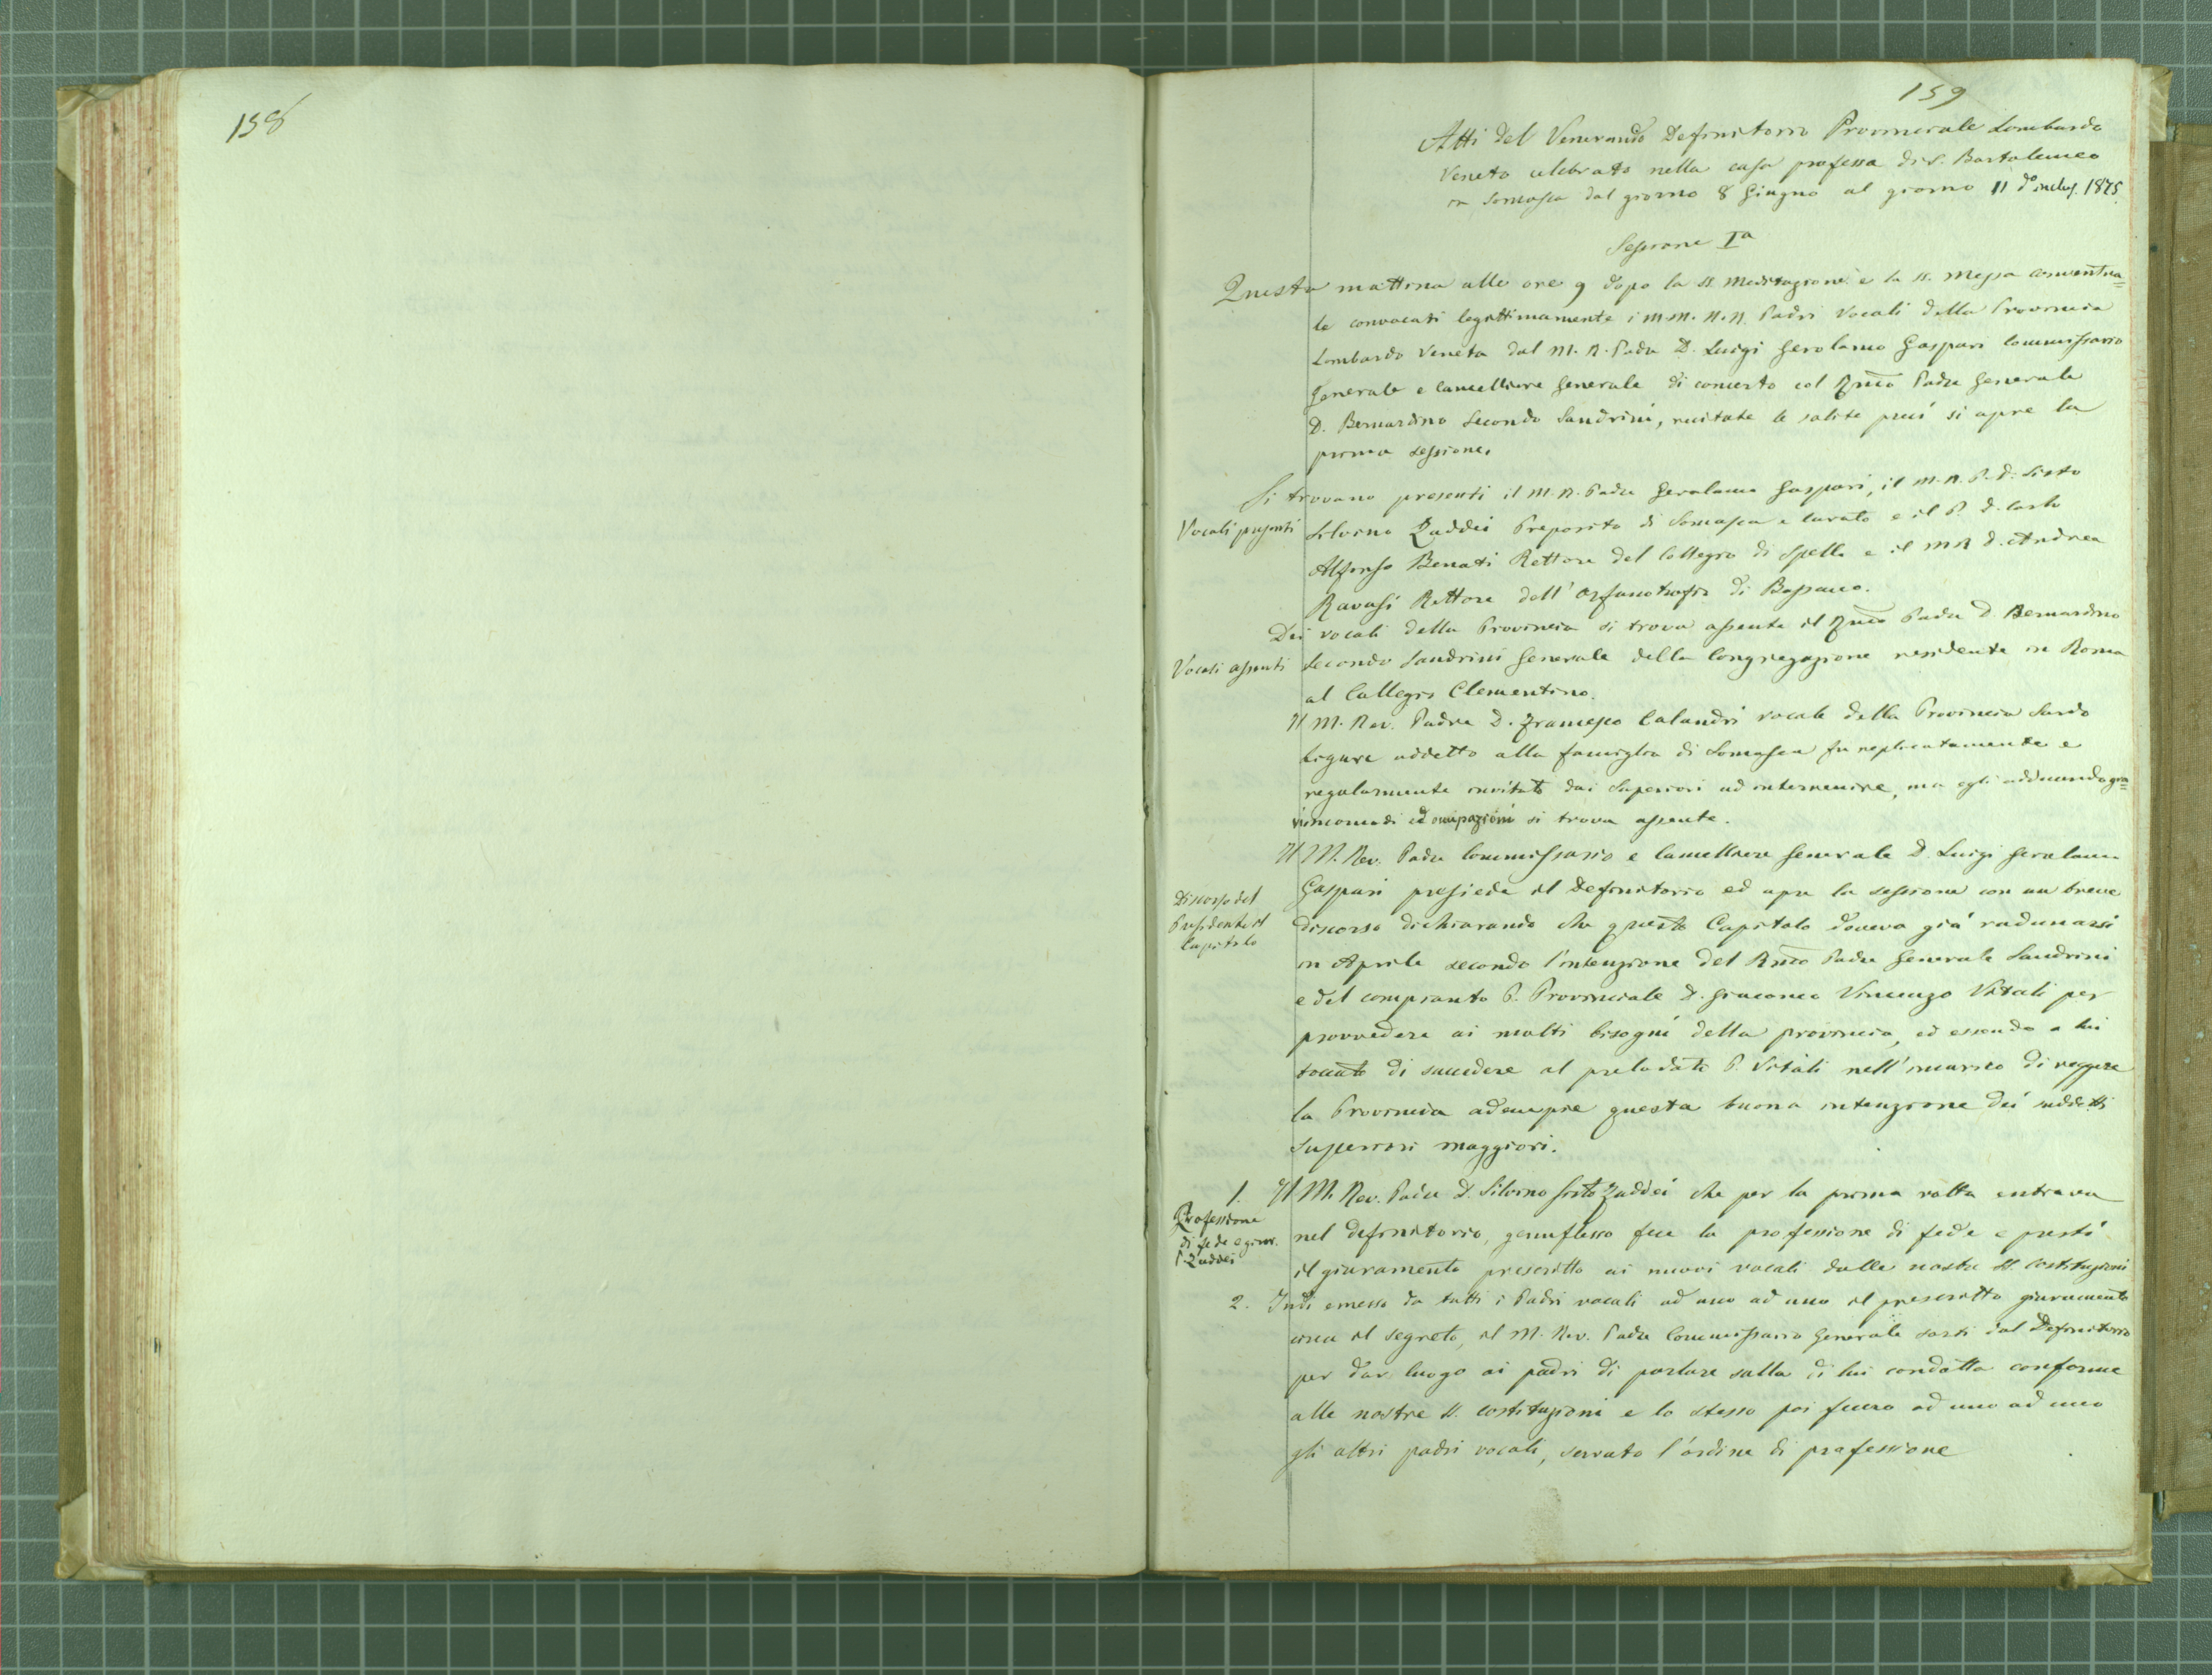 158
159
Atti del Venerando Definitorio Provinciale Lombardo
Veneto celebrato nella casa professa di S. Bartolomeo
in Somasca dal giorno 8 Giugno al giorno 11 do inclus. 1875.
Sessione Ia
Questa mattina alle ore 9 dopo la SS. Meditazione e la SS. Messa conventua=
le convocati legittimamente i M.M. R.R. Padri Vocali della Provincia
Lombardo Veneta dal M. R. Padre D. Luigi Gerolamo Gaspari Commissario
Generale e Cancelliere Generale di concerto col Rmo Padre Generale
D. Bernardino Secondo Sandrini, recitate le solite preci si apre la
prima sessione.
Si trovano presenti il M.R. Padre Gerolamo Gaspari, il M.R.P.D. Sisto
Vocali presenti
Silvino Zaddei Preposito di Somasca e Curato e il P. D. Carlo
Alfonso Benati Rettore del Collegio di Spello e il M R D. Andrea
Ravasi Rettore dell'Orfanotrofio di Bassano.
Dei vocali della Provincia si trova assente il Rmo Padre D Bernardino
Vocali assenti
Secondo Sandrini Generale della Congregazione residente in Roma
al Collegio Clementino.
Il M. Rev. Padre D. Francesco Calandri vocale della Provincia Sardo
Ligure addetto alla famiglia di Somasca fu replicatamente e
regolarmente invitato dai Superiori ad intervenire, ma egli adducendo gra=
vi incomodi ed occupazioni si trova assente.
Il M. Rev. Padre Commissario e Cancelliere Generale D. Luigi Gerolamo
Discorso del
Presidente il
Capitolo
Gaspari presiede il Definitorio ed apre la sessione con un breve
discorso dichiarando che questo Capitolo doveva già radunarsi
in Aprile secondo l'intenzione del Rmo Padre Generale Sandrini
e del compianto P. Provinciale D. Giacomo Vincenzo Vitali per
provvedere ai molti bisogni della provincia, ed essendo a lui
toccato di succedere al prelodato P. Vitali nell'incarico di reggere
la Provincia adempie questa buona intenzione dei suddetti
superiori maggiori.
1. Il M. Rev. Padre D. Silvino Sisto Zaddei che per la prima volta entrava
Professione
di fede e giur.
P. Zaddei
nel definitorio, genuflesso fece la professione di fede e prestò
il giuramento prescritto ai nuovi vocali dalle nostre SS. Costituzioni
2. Indi emesso da tutti i Padri vocali ad uno ad uno il prescritto giuramento
circa il segreto, il M. Rev. Padre Commissario Generale sortì dal Definitorio
per dar luogo ai padri di parlare sulla di lui condotta conforme
alle nostre SS. Costituzioni e lo stesso poi fecero ad uno ad uno
gli altri padri vocali, servato l'ordine di professione